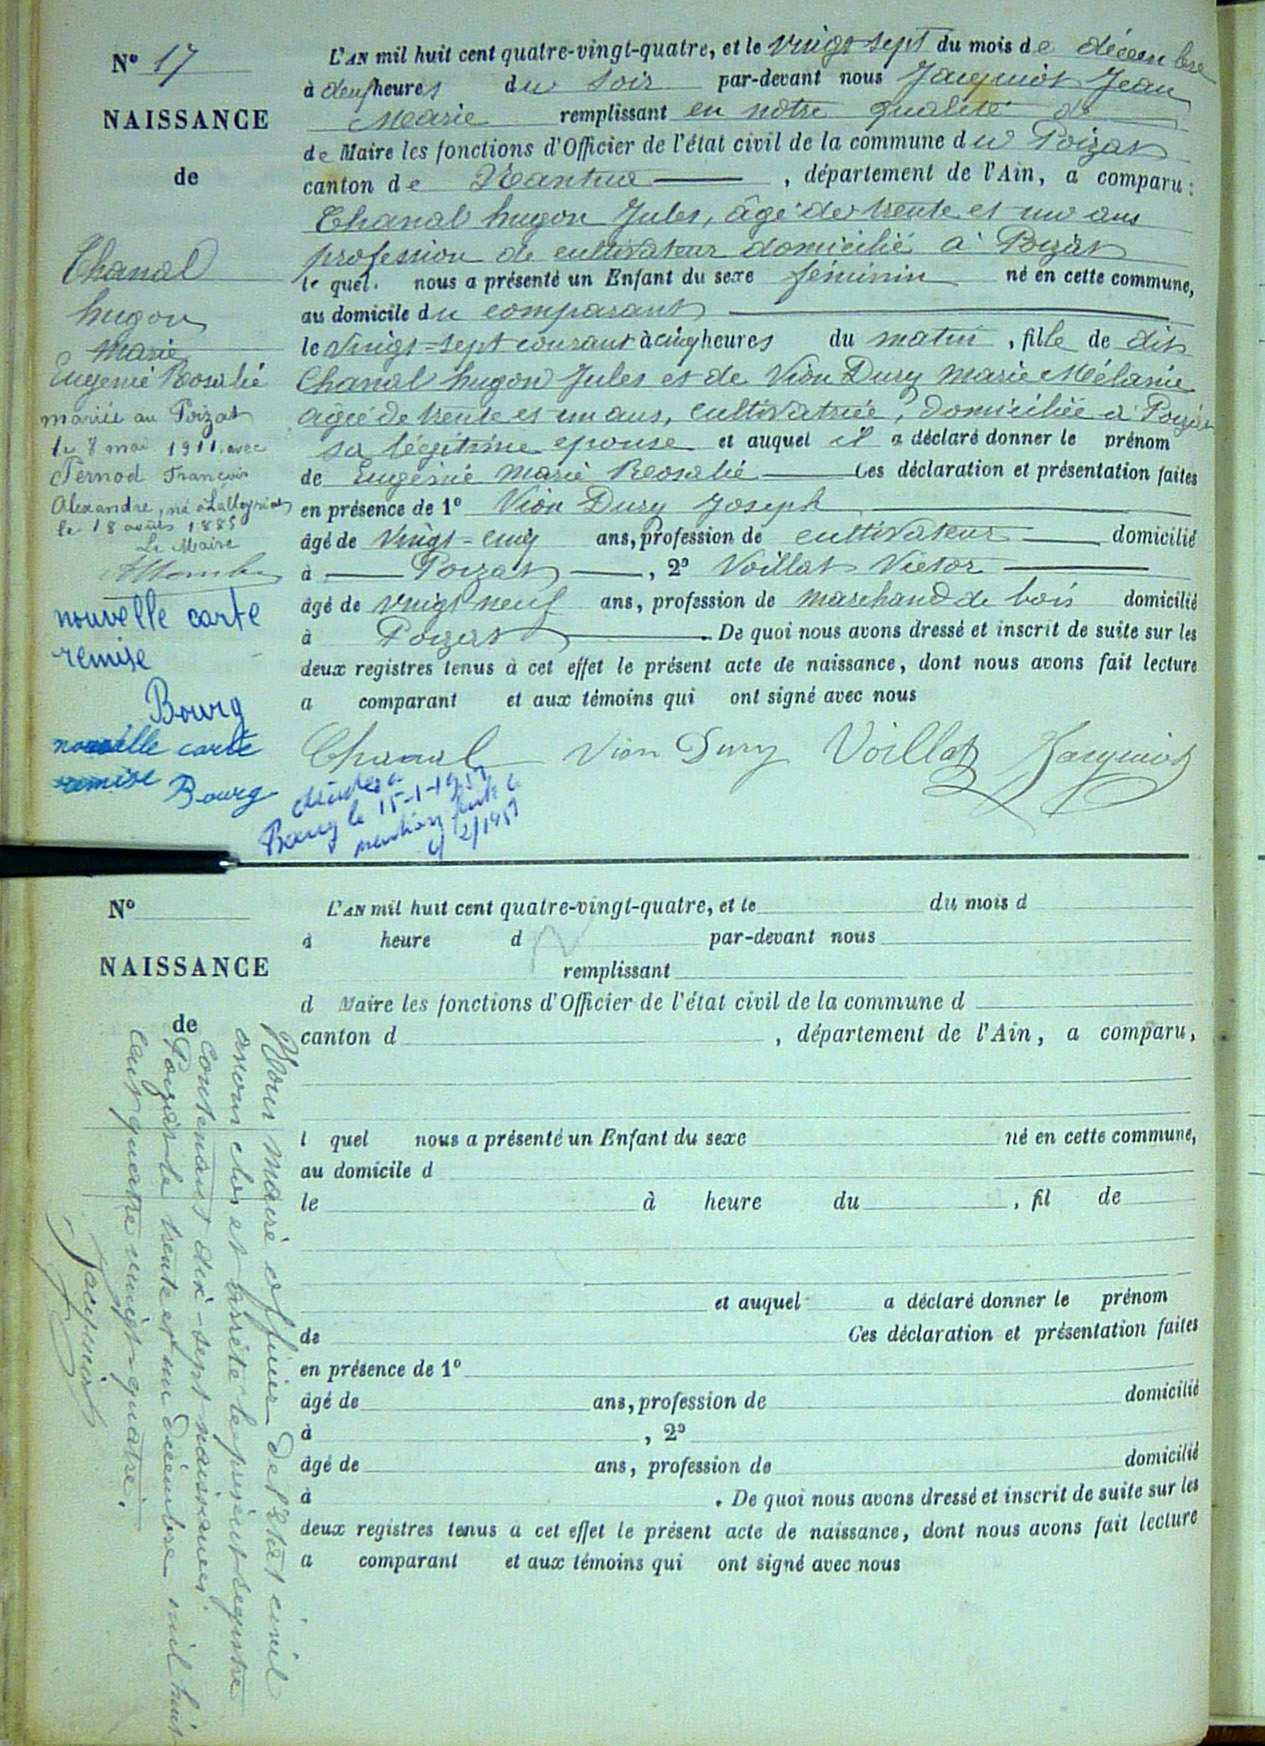 N° 17
NAISSANCE
de
Chanal
hugon
Marie
Eugénie Rosalie
mariée au Poizat
le 8 mai 1911 avec
Pernod François
Alexandre, né à Lalleyriat
le 18 août 1885
Le Maire
nouvelle carte
remise
Bourg
nouvelle carte
remise Bourg
L'AN mil huit cent quatre-vingt-quatre, et le vingt sept du mois de décembre
à deux heures du soir par-devant nous Jacquiot Jean
Marie remplissant en notre qualité de
de Maire les fonctions d'Officier de l'état civil de la commune du Poizat
canton de Nantua , département de l'Ain, a comparu :
Chanal hugon Jules, âgé de trente et un ans
profession de cultivateur domicilié à Poizat
le quel. nous a présenté un Enfant du sexe féminin né en cette commune,
au domicile du comparant
le vingt-sept courant à cinq heures du matin , fille de dit
Chanal hugon Jules et de Vion Dury Marie Mélanie
agée de trente et un ans, cultivatrice, domiciliée à Poizat
sa légitime epouse et auquel il a déclaré donner le prénom
de Eugénie Marie Rosalie Ces déclaration et présentation faites
en présence de 1° Vion Dury Joseph
âgé de vingt-cinq ans, profession de cultivateur domicilié
à Poizat , 2° Voillat Victor
âgé de vingt neuf ans, profession de marchand de bois domicilié
à Poizat . De quoi nous avons dressé et inscrit de suite sur les
deux registres tenus à cet effet le présent acte de naissance, dont nous avons fait lecture
a comparant et aux témoins qui ont signé avec nous
Chanal Vion Dury Voillat Jacquiot
décédée à
Bourg le 15-1-1957
mention faite le
4/2/1957
N°
NAISSANCE
de
L'AN mil huit cent quatre-vingt-quatre, et le du mois d
à heure d par-devant nous
remplissant
d Maire les fonctions d'Officier de l'état civil de la commune d
canton d , département de l'Ain, a comparu,
l quel nous a présenté un Enfant du sexe né en cette commune,
au domicile d
le à heure du , fil de
et auquel a déclaré donner le prénom
de Ces déclaration et présentation faites
en présence de 1°
âgé de ans, profession de domicilié
à , 2°
âgé de ans, profession de domicilié
à . De quoi nous avons dressé et inscrit de suite sur les
deux registres tenus à cet effet le présent acte de naissance, dont nous avons fait lecture
a comparant et aux témoins qui ont signé avec nous
Nous Maire officier de l'état civil
avons clos et arrêté le présent registre
contenant dix-sept naissances
Poizat le trente et un décembre mil huit
cent quatre vingt-quatre.
Jacquiot